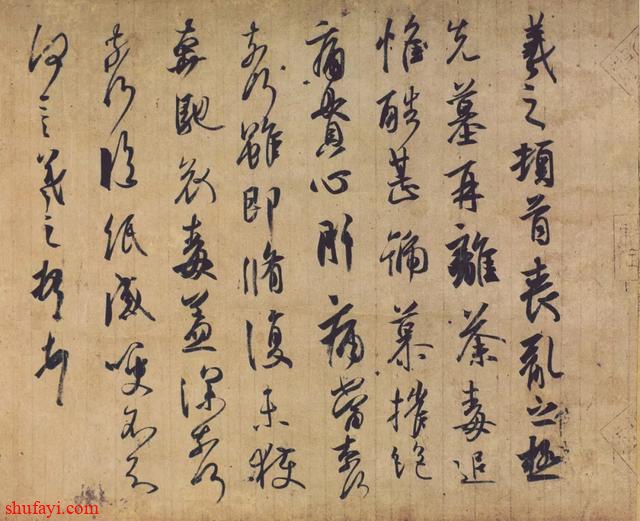 羲之頓首喪亂之極
先墓再離荼毒追
惟酷甚號慕摧絕
痛貫心肝痛當奈何
奈何雖即脩復未獲
奔馳哀毒益深奈何
奈何臨紙感哽不知
何言羲之頓首
shufayi.com